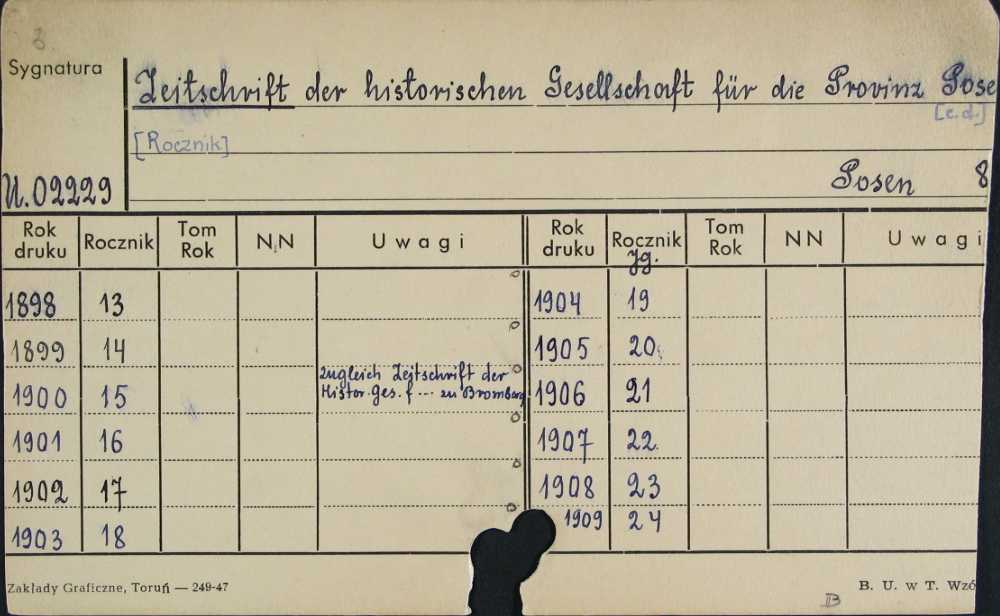 8
Sygnatura
Zeitschrift der historischen Gesellschaft für die Provinz Pose
[c.d.]
[Rocznik]
U.02229
Posen 8
Rok druku Rocznik Tom Rok N.N Uwagi Rok druku Rocznik Jg. Tom Rok NN Uwagi
1898 13 1904 19
1899 14 1905 20
zugleich Zeitschrift der
1900 15 Histor. Ges. f ... zu Bromberg 1906 21
1901 16 1907 22
1902 17 1908 23
1909 24
1903 18
Zakłady Graficzne, Toruń — 249-47 B. U. w T. Wzó